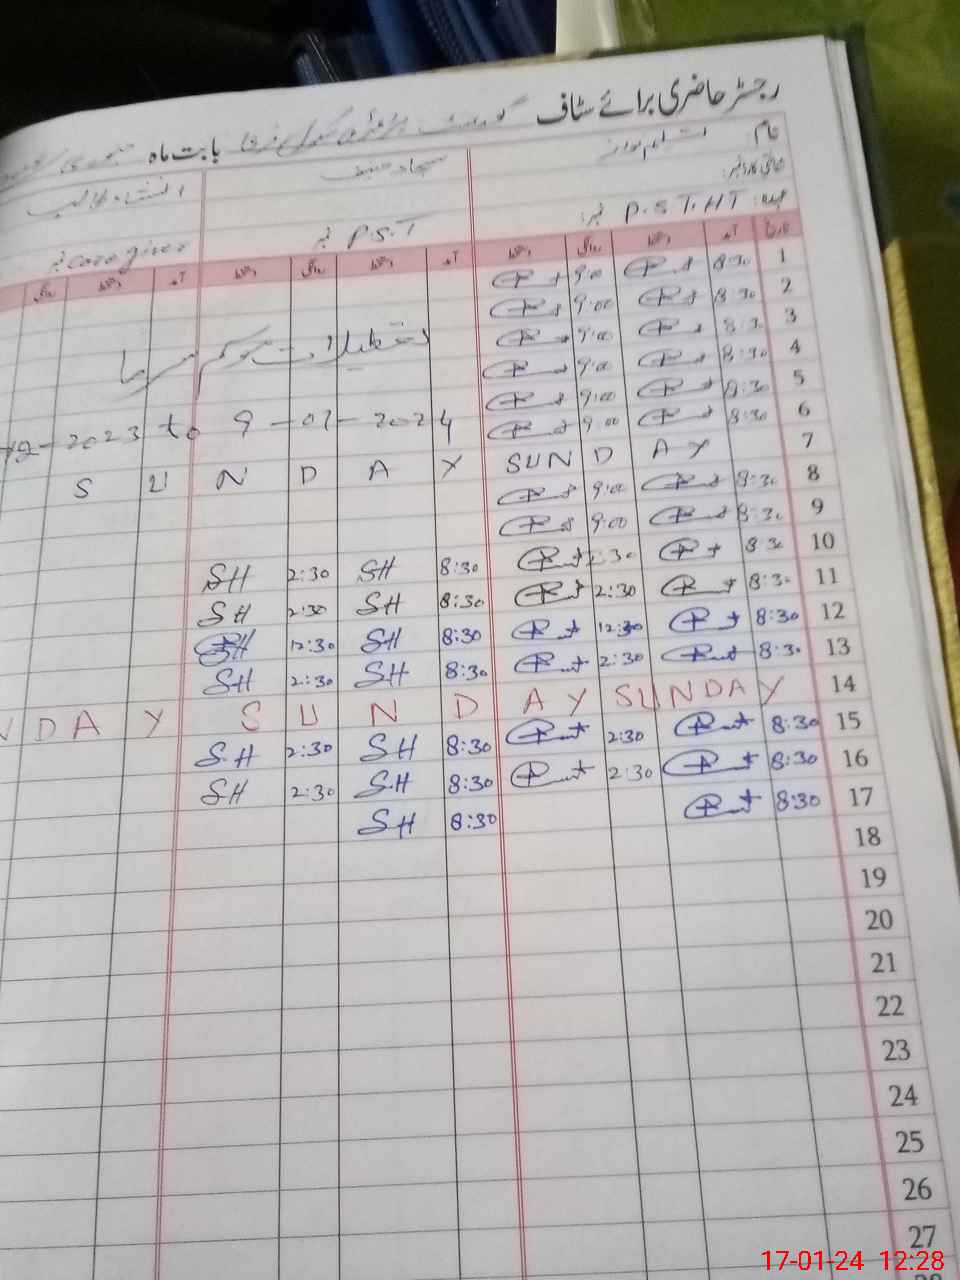 رجسٹر حاضری برائے سٹاف گورنمنٹ پرائمری سکول بابت ماہ جنوری
نام:
سجاد حنیف
عہدہ: P.S.T.HT نمبر:
P.S.T نمبر
Caregiver نمبر
تاریخ آمد دستخط روانگی دستخط آمد دستخط روانگی دستخط آمد دستخط روانگی
1 8:30 9:00
2 8:30 9:00
3 8:30 9:00
4 8:30 9:00 تعطیلات موسم سرما
5 8:30 9:00
6 8:30 9:00 12-2023 to 9-01-2024
7 SUNDAY SUNDAY
8 8:30 9:00
9 8:30 9:00
10 8:30 2:30 8:30 SH 2:30 SH
11 8:30 2:30 8:30 SH 2:30 SH
12 8:30 12:30 8:30 SH 12:30 SH
13 8:30 2:30 8:30 SH 2:30 SH
14 SUNDAY SUNDAY NDAY
15 8:30 2:30 8:30 SH 2:30 SH
16 8:30 2:30 8:30 SH 2:30 SH
17 8:30 8:30 SH
18
19
20
21
22
23
24
25
26
27
17-01-24 12:28